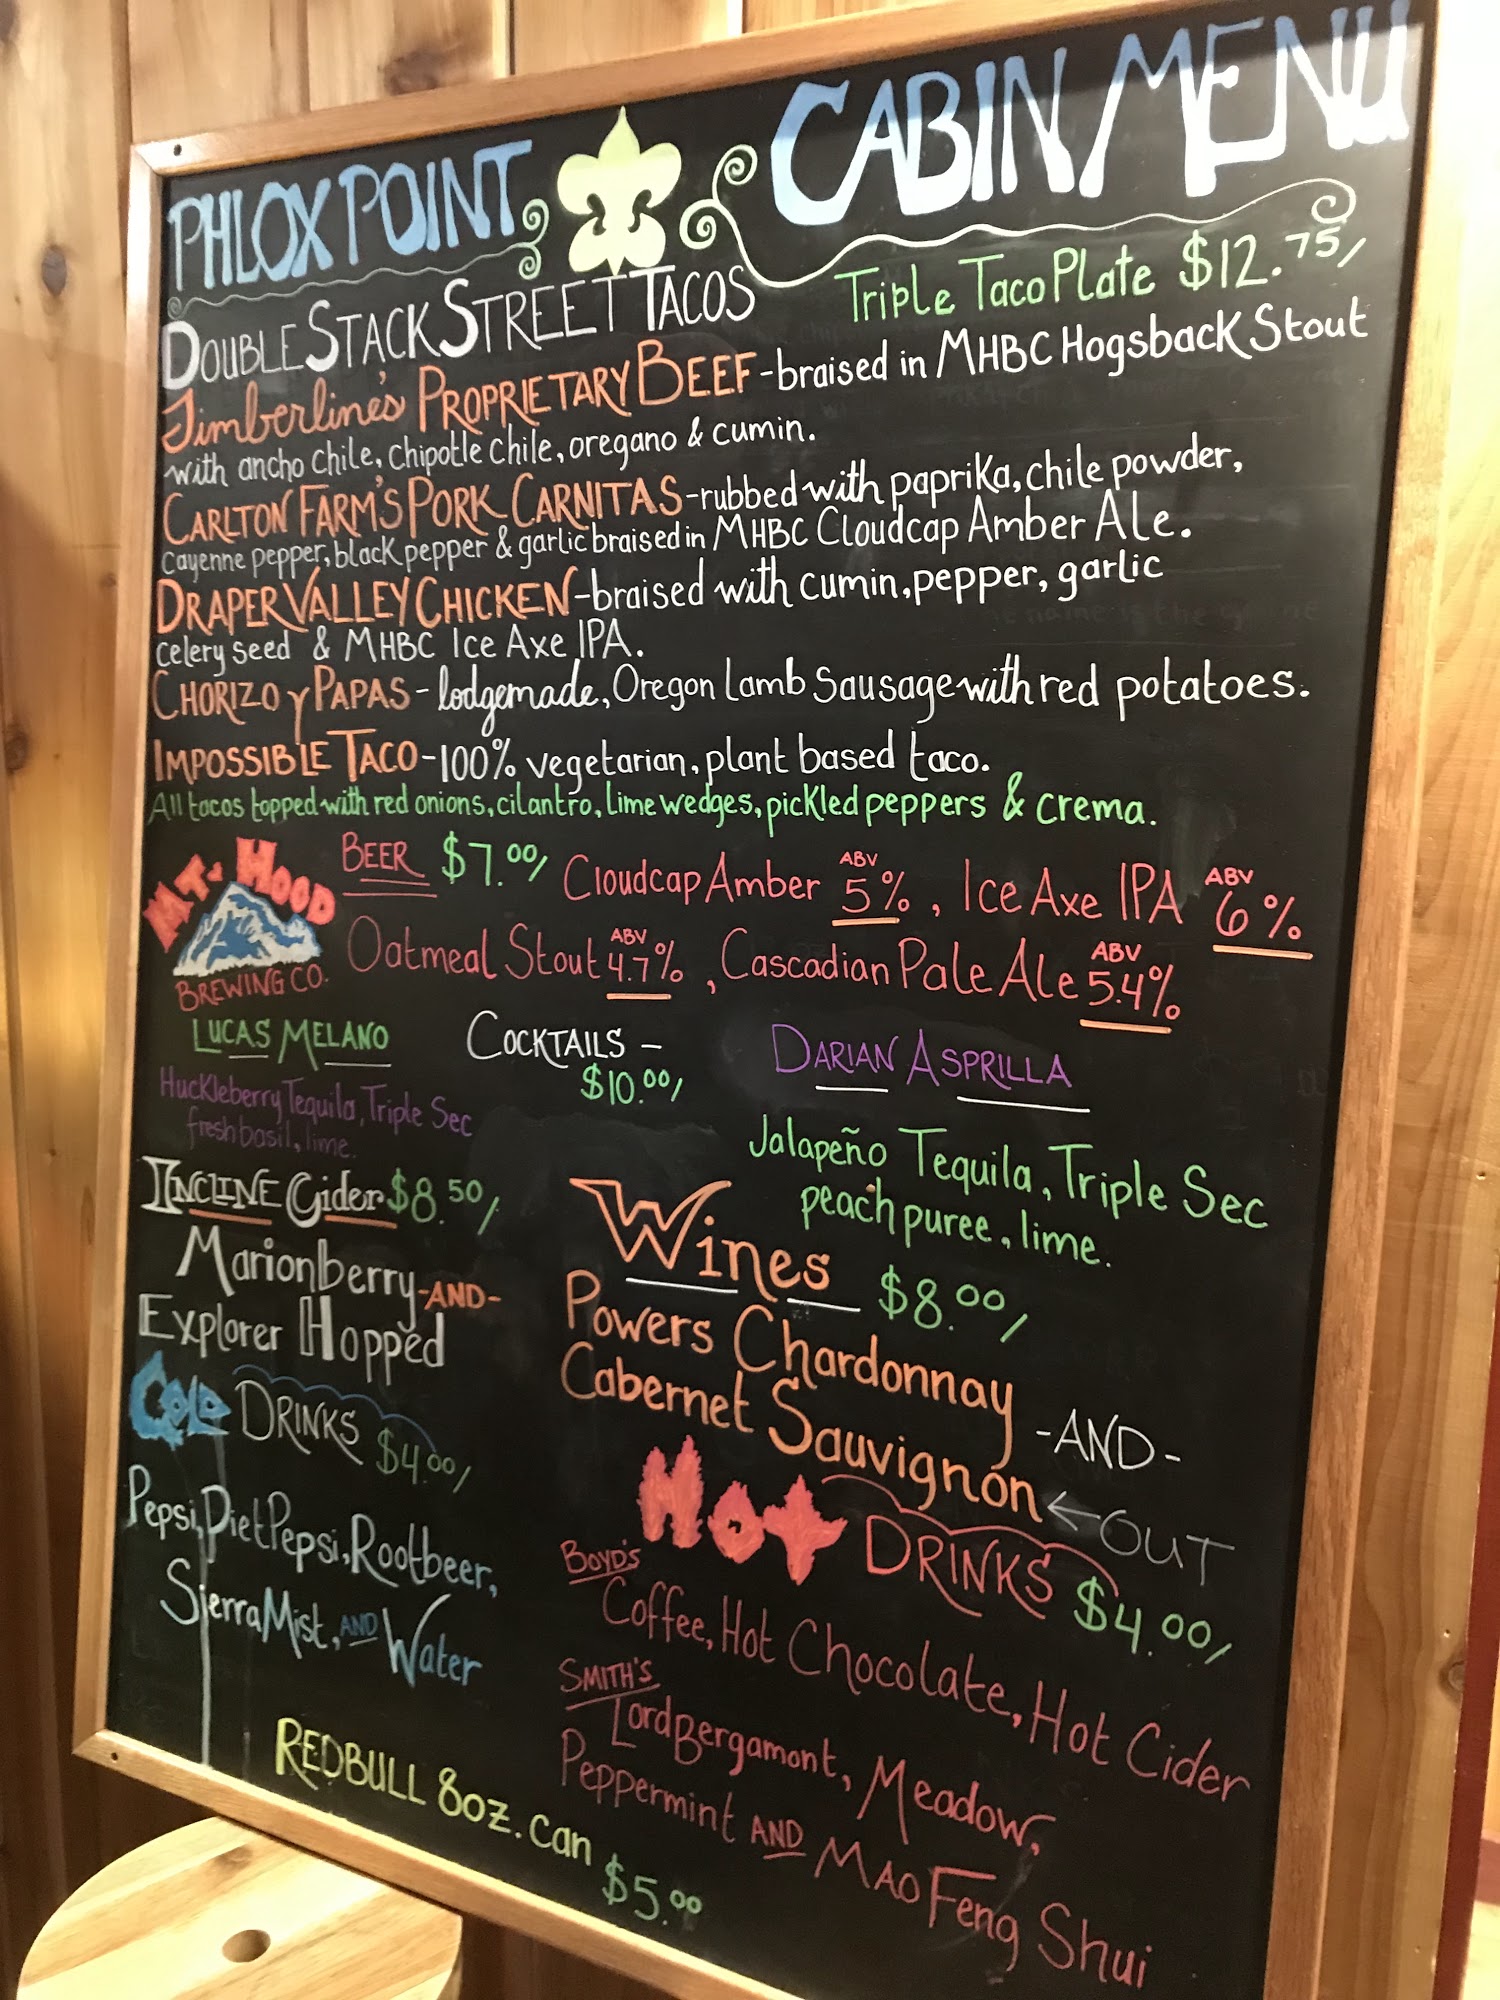 PHLOX POINT CABIN MENU
DOUBLE STACK STREET TACOS Triple Taco Plate $12.75/
Timberline's PROPRIETARY BEEF-braised in MHBC Hogsback Stout
with ancho chile, chipotle chile, oregano & cumin.
CARLTON FARM'S PORK CARNITAS-rubbed with paprika, chile powder,
cayenne pepper, black pepper & garlic braised in MHBC Cloudcap Amber Ale.
DRAPER VALLEY CHICKEN-braised with cumin, pepper, garlic
celery seed & MHBC Ice Axe IPA.
CHORIZO y PAPAS-lodgemade, Oregon Lamb Sausage with red potatoes.
IMPOSSIBLE TACO-100% vegetarian, plant based taco.
All tacos topped with red onions, cilantro, lime wedges, pickled peppers & crema.
MT. HOOD
BREWING CO.
BEER $7.00/ Cloudcap Amber ABV 5%, Ice Axe IPA ABV 6%
Oatmeal Stout ABV 4.7%, Cascadian Pale Ale ABV 5.4%
COCKTAILS - $10.00/
LUCAS MELANO
Huckleberry Tequila, Triple Sec
fresh basil, lime.
DARIAN ASPRILLA
Jalapeño Tequila, Triple Sec
peach puree, lime.
INCLINE Cider $8.50/
Marionberry -AND-
Explorer Hopped
Wines $8.00/
Powers Chardonnay -AND-
Cabernet Sauvignon ← OUT
COLD DRINKS $4.00/
Pepsi, Diet Pepsi, Rootbeer,
Sierra Mist, AND Water
HOT DRINKS $4.00/
BOYD'S
Coffee, Hot Chocolate, Hot Cider
SMITH'S
Lord Bergamont, Meadow,
Peppermint AND MAO Feng Shui
REDBULL 8oz. can $5.00